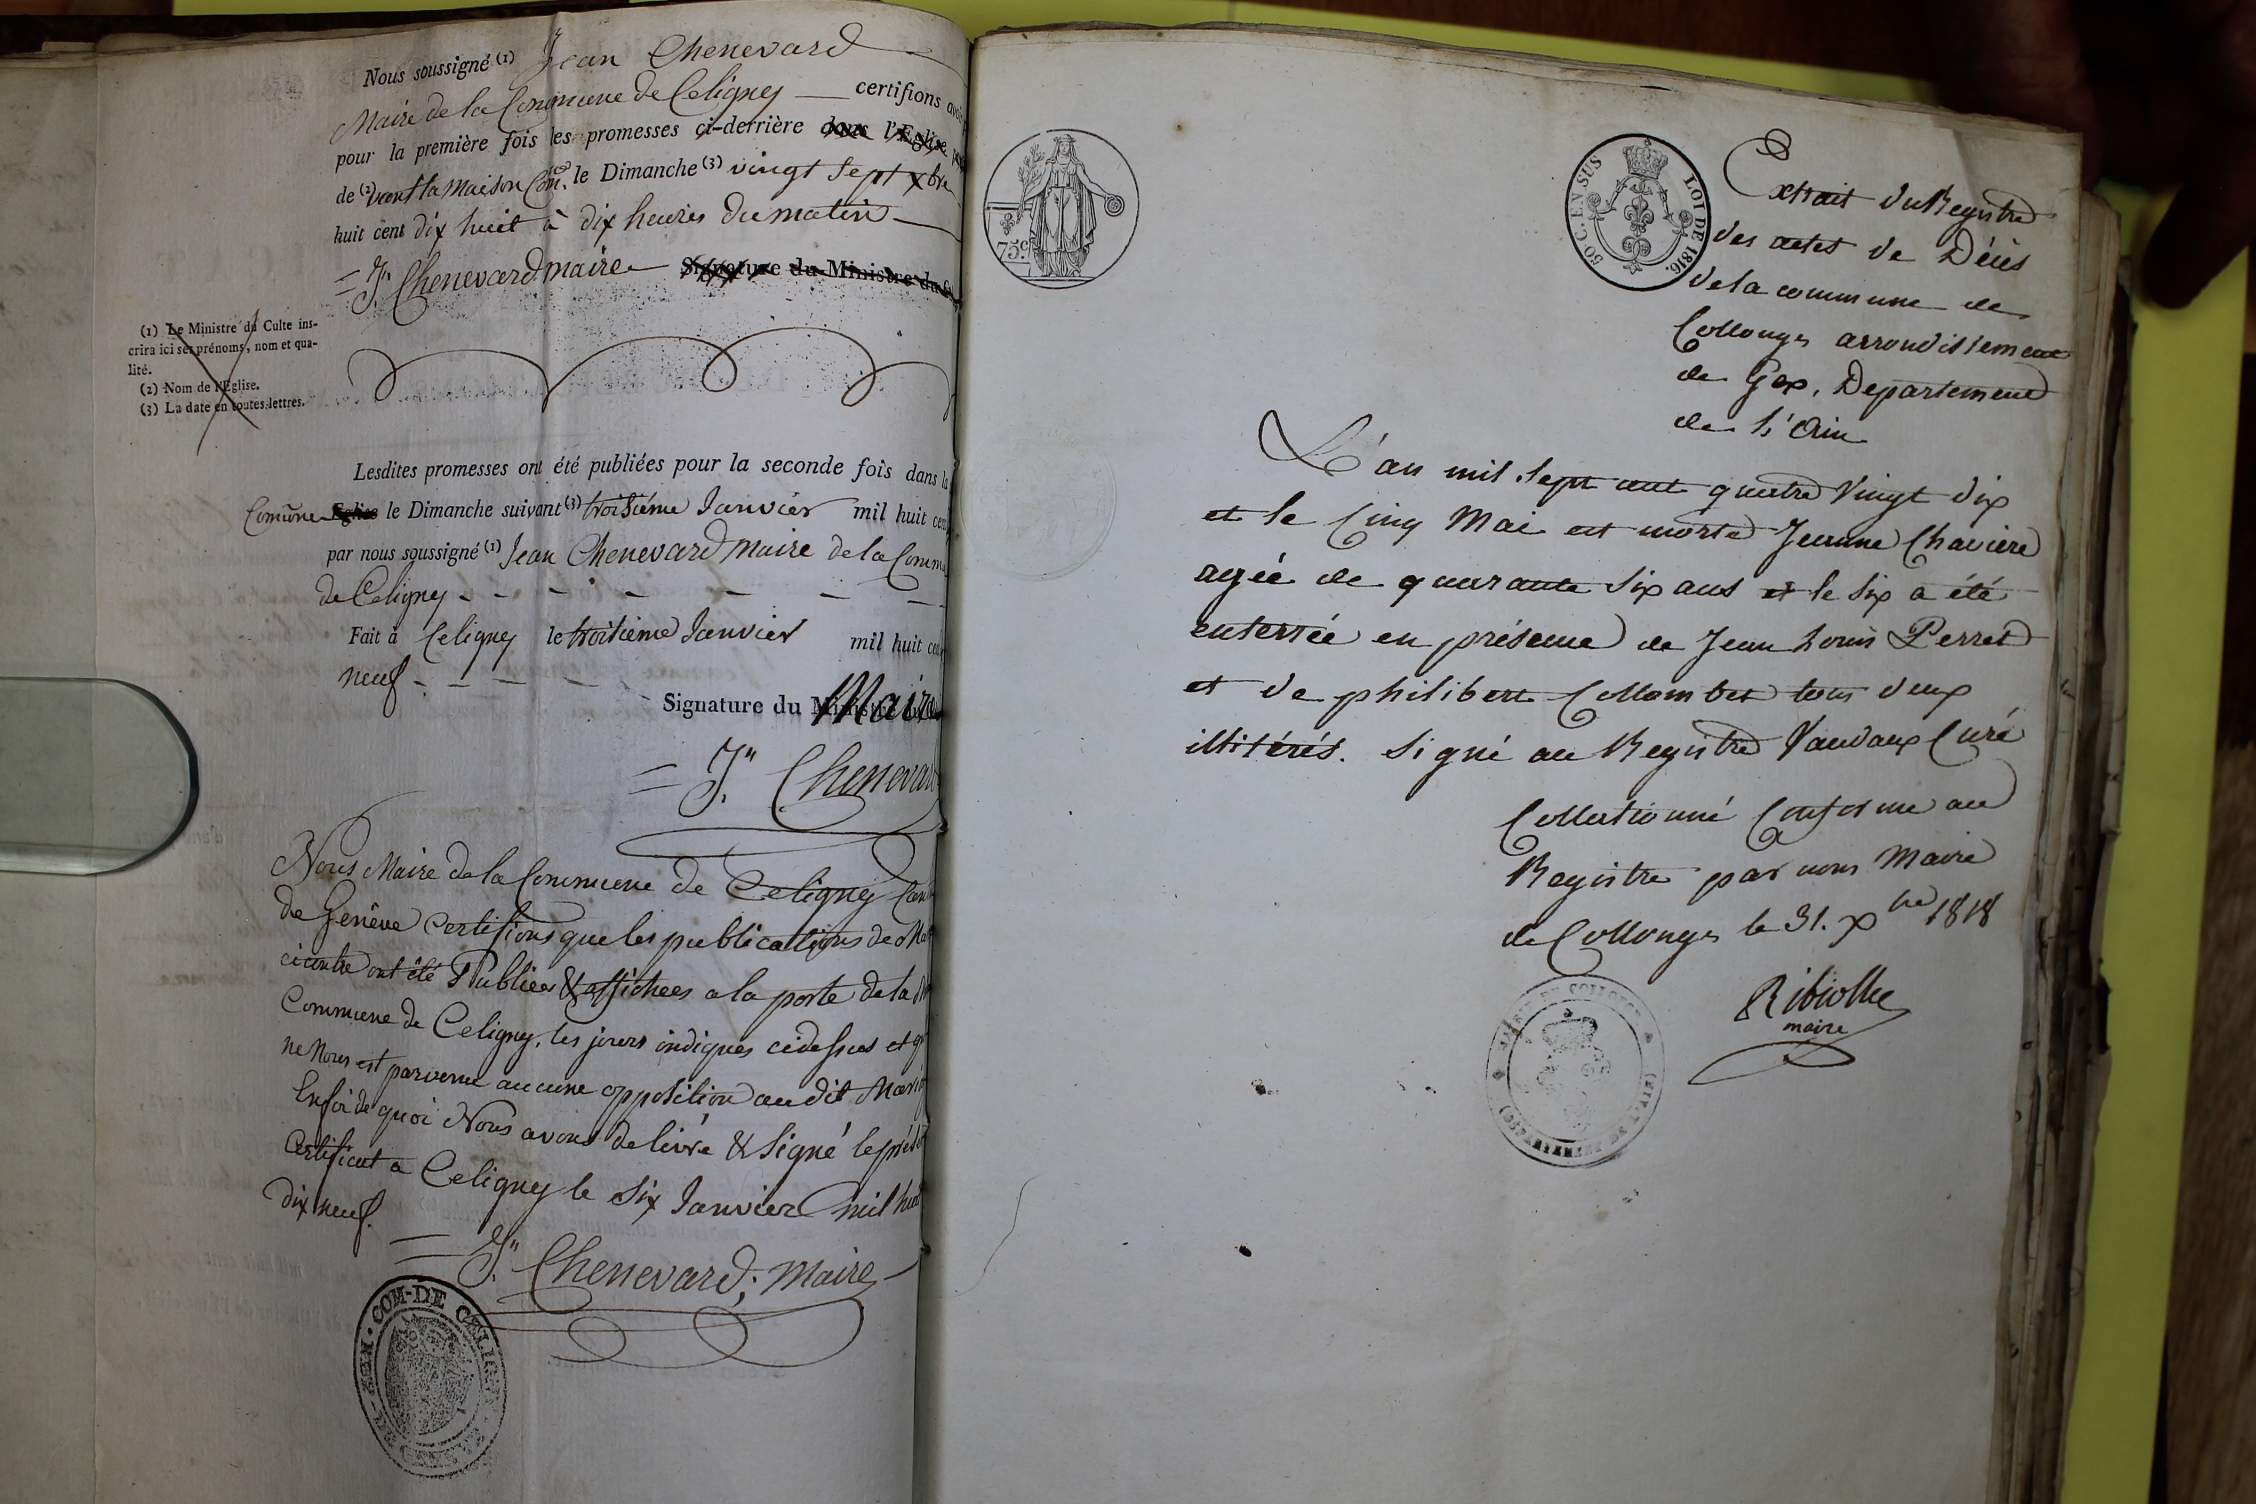 Nous soussigné (1) Jean Chenevard
Maire de la Commune de Celigney — certifions
pour la première fois les promesses ci-derrière dans l'Eglise
de (2) vant la Maison Com.ne le Dimanche (3) vingt sept xbre
huit cent dix huit à dix heures du matin
= Jn. Chenevard maire Signature du Ministre du
(1) Le Ministre du Culte ins-
crira ici ses prénoms, nom et qua-
lité.
(2) Nom de l'Eglise.
(3) La date en toutes lettres.
Lesdites promesses ont été publiées pour la seconde fois dans la
Comune Eglise le Dimanche suivant (3) troisiéme Janvier mil huit cent
par nous soussigné (1) Jean Chenevard Maire de la Comm
de Celigney - - - - - - -
Fait à Celigney le troisième Janvier mil huit
neuf - - - -
Signature du Ministre Maire
= Jn. Chenevard
Nous Maire de la Commune de Celigney
de Genêve Certifions que les publications de
ci contre ont été Publiées & affichées a la porte de la
Commune de Celigney, les jours indiqués cidessus et
ne Nous est parvenu aucune opposition au dit
En foi de quoi Nous avons delivré & Signé le
Certificat a Celigney le Six Janvier mil huit
dix neuf.
= Jn. Chenevard, Maire
COM-DE CELIGNY
75 c.
50 C. EN SUS LOI DE 1816.
Extrait du Registre
des actes de Décès
de la commune de
Collonges arrondissement
de Gex, Departement
de l'Ain
L'an mil sept cent quatre vingt dix
et le Cinq Mai est morte Jeanne Chaviere
agée de quarante six ans et le six a été
enterrée en présence de Jean Louis Perret
et de philibert Collombet tous deux
illitérés. Signé au Registre Vauvaux Curé
Collectionné Conforme au
Registre par nous Maire
de Collonges le 31. xbre 1818
Ribiollee
maire
MAIRIE DE COLLONGE
(DÉPARTEMENT DE L'AIN)